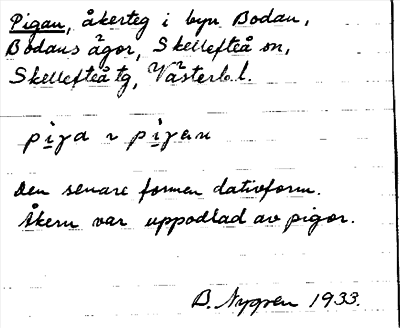 Pigan, åkerteg i byn Bodan,
Bodans ägor, Skellefteå sn,
Skellefteå tg, Västerb.l.
Den senare formen dativform.
Åkern var uppodlad av pigor.
B. Nygren 1933.